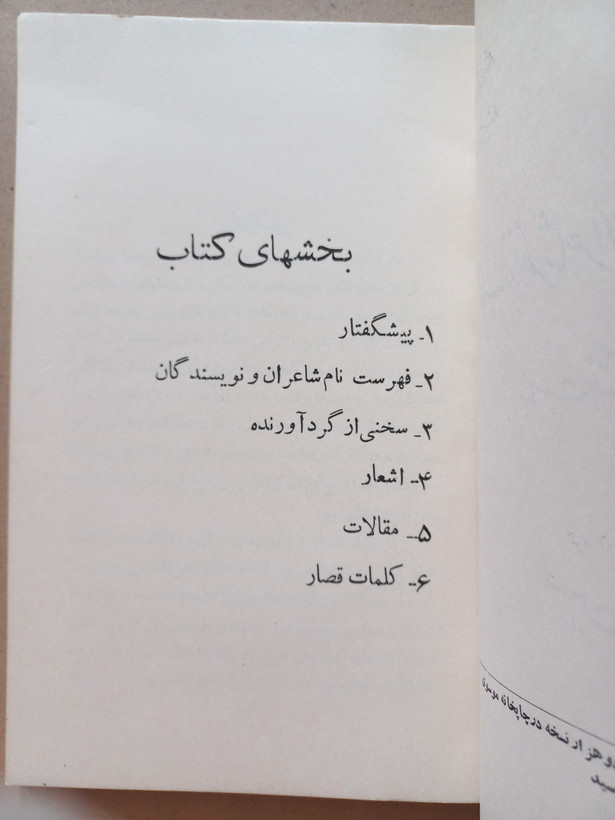 بخشهای کتاب
۱ـ پیشگفتار
۲ـ فهرست نام شاعران و نویسندگان
۳ـ سخنی از گردآورنده
۴ـ اشعار
۵ـ مقالات
۶ـ کلمات قصار
دو هزار نسخه در چاپخانه